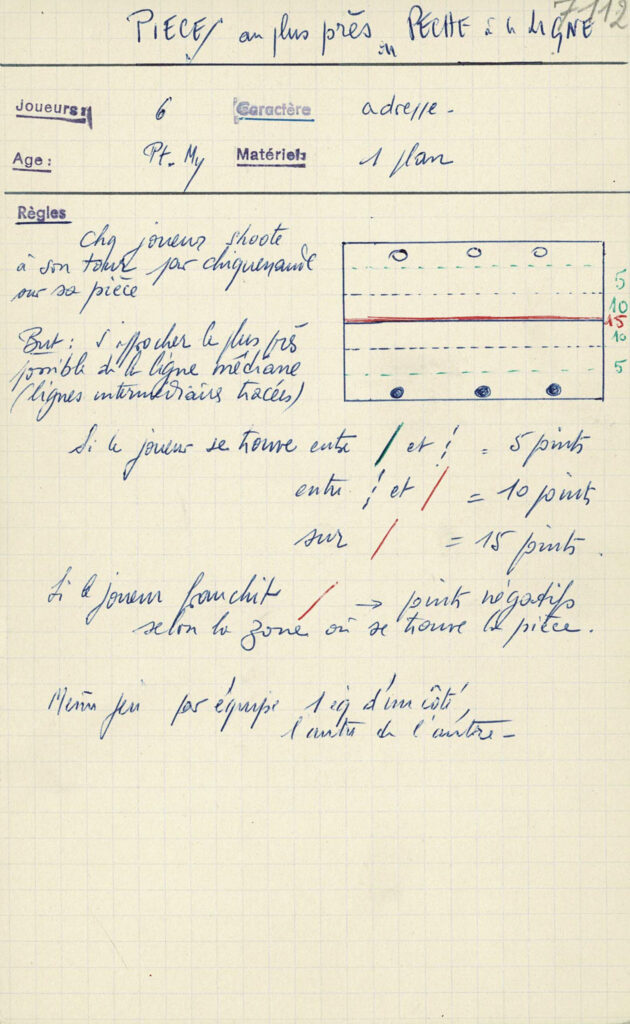 7112
PIECES au plus près ou PECHE à la LIGNE
Joueurs: 6 Caractère adresse -
Age: Pt. My Matériel: 1 plan
Règles
Chq joueur shoote
à son tour par chiquenaude
sur sa pièce
5
10
15
10
5
But : s'approcher le plus près
possible de la ligne médiane
(lignes intermédiaire tracées)
Si le joueur se trouve entre / et ¦ = 5 points
entre ¦ et / = 10 points
sur / = 15 points.
Si le joueur franchit / → points négatifs
selon la zone où se trouve la pièce.
Même jeu par équipe 1 éq d'un côté,
l'autre de l'autre -